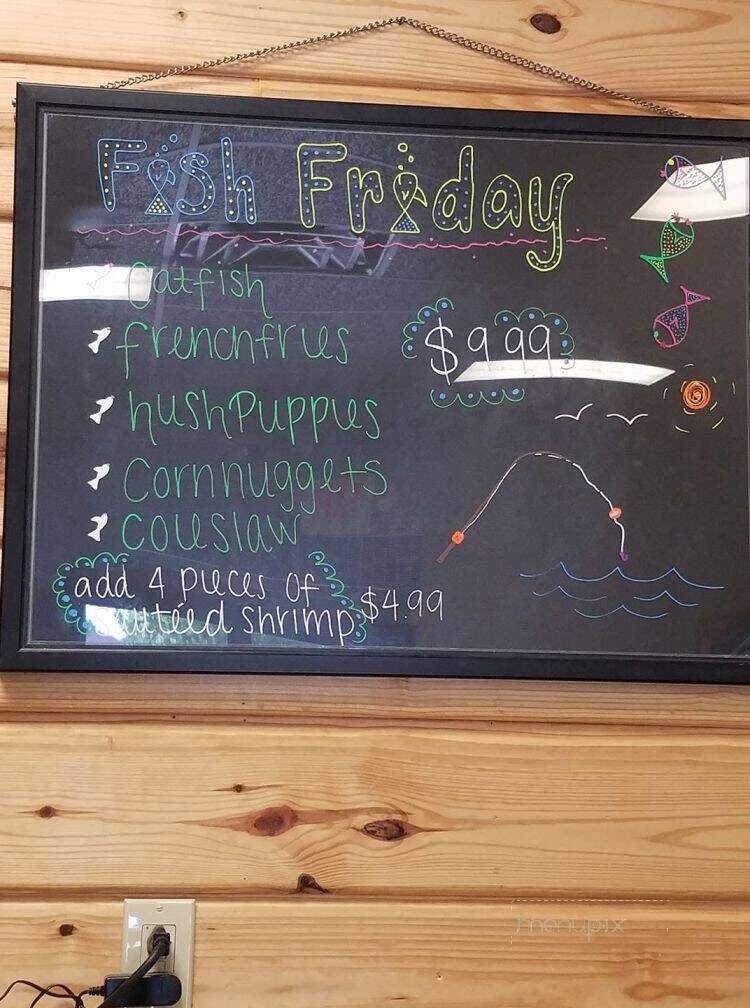 Fish Friday
Catfish
frenchfries
$9.99
hushpuppies
Cornnuggets
coleslaw
add 4 pieces of
shrimp $4.99
menupix